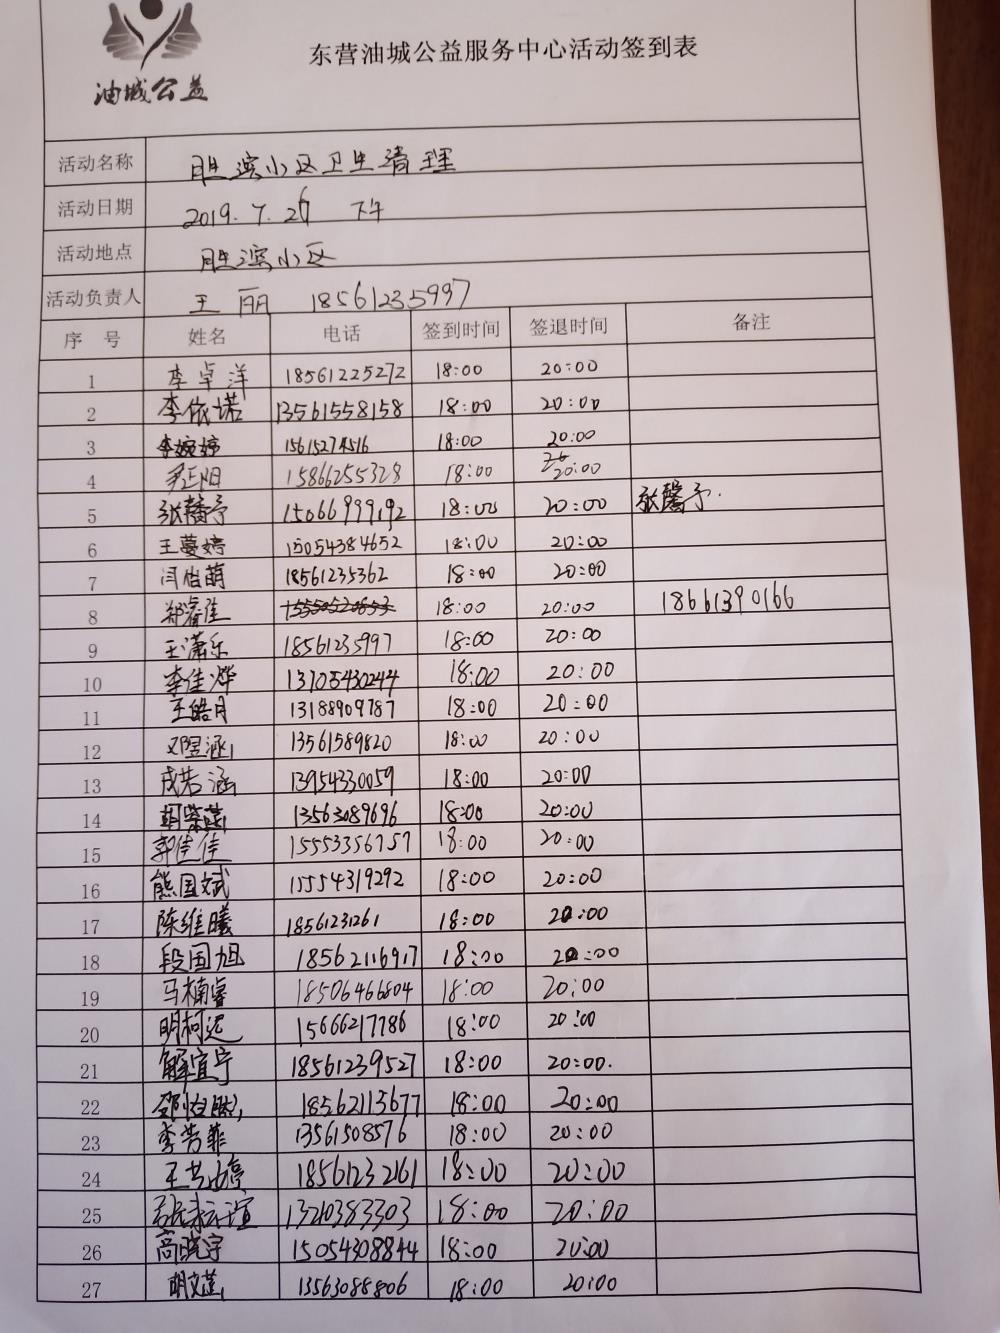 东营油城公益服务中心活动签到表
油城公益
活动名称 胜滨小区卫生清理
活动日期 2019.7.26 下午
活动地点 胜滨小区
活动负责人 王丽 18561235997
序号 姓名 电话 签到时间 签退时间 备注
1 李卓洋 18561225272 18:00 20:00
2 李依诺 13561558158 18:00 20:00
3 李婉婷 15615274516 18:00 20:00
4 15866255328 18:00 20:00
5 张馨予 15066999192 18:00 20:00 张馨予.
6 王蔓婷 15054384652 18:00 20:00
7 闫怡萌 18561235362 18:00 20:00
8 郑睿佳 15550520853 18:00 20:00 18661390166
9 王潇乐 18561235997 18:00 20:00
10 李佳烨 13705430244 18:00 20:00
11 王皓月 13188909787 18:00 20:00
12 邓昱涵 13561589820 18:00 20:00
13 成若涵 13954330059 18:00 20:00
14 13563089696 18:00 20:00
15 郭佳佳 15553356757 18:00 20:00
16 熊国斌 15554319292 18:00 20:00
17 陈维曦 18561231261 18:00 20:00
18 段国旭 18562116917 18:00 20:00
19 马楠睿 18506466804 18:00 20:00
20 明柯远 15666217786 18:00 20:00
21 解宜宁 18561239527 18:00 20:00.
22 18562113677 18:00 20:00
23 李芳菲 13561508576 18:00 20:00
24 王艺婷 18561232161 18:00 20:00
25 13210383303 18:00 20:00
26 高晓宇 15054308844 18:00 20:00
27 胡文菡 13563088806 18:00 20:00